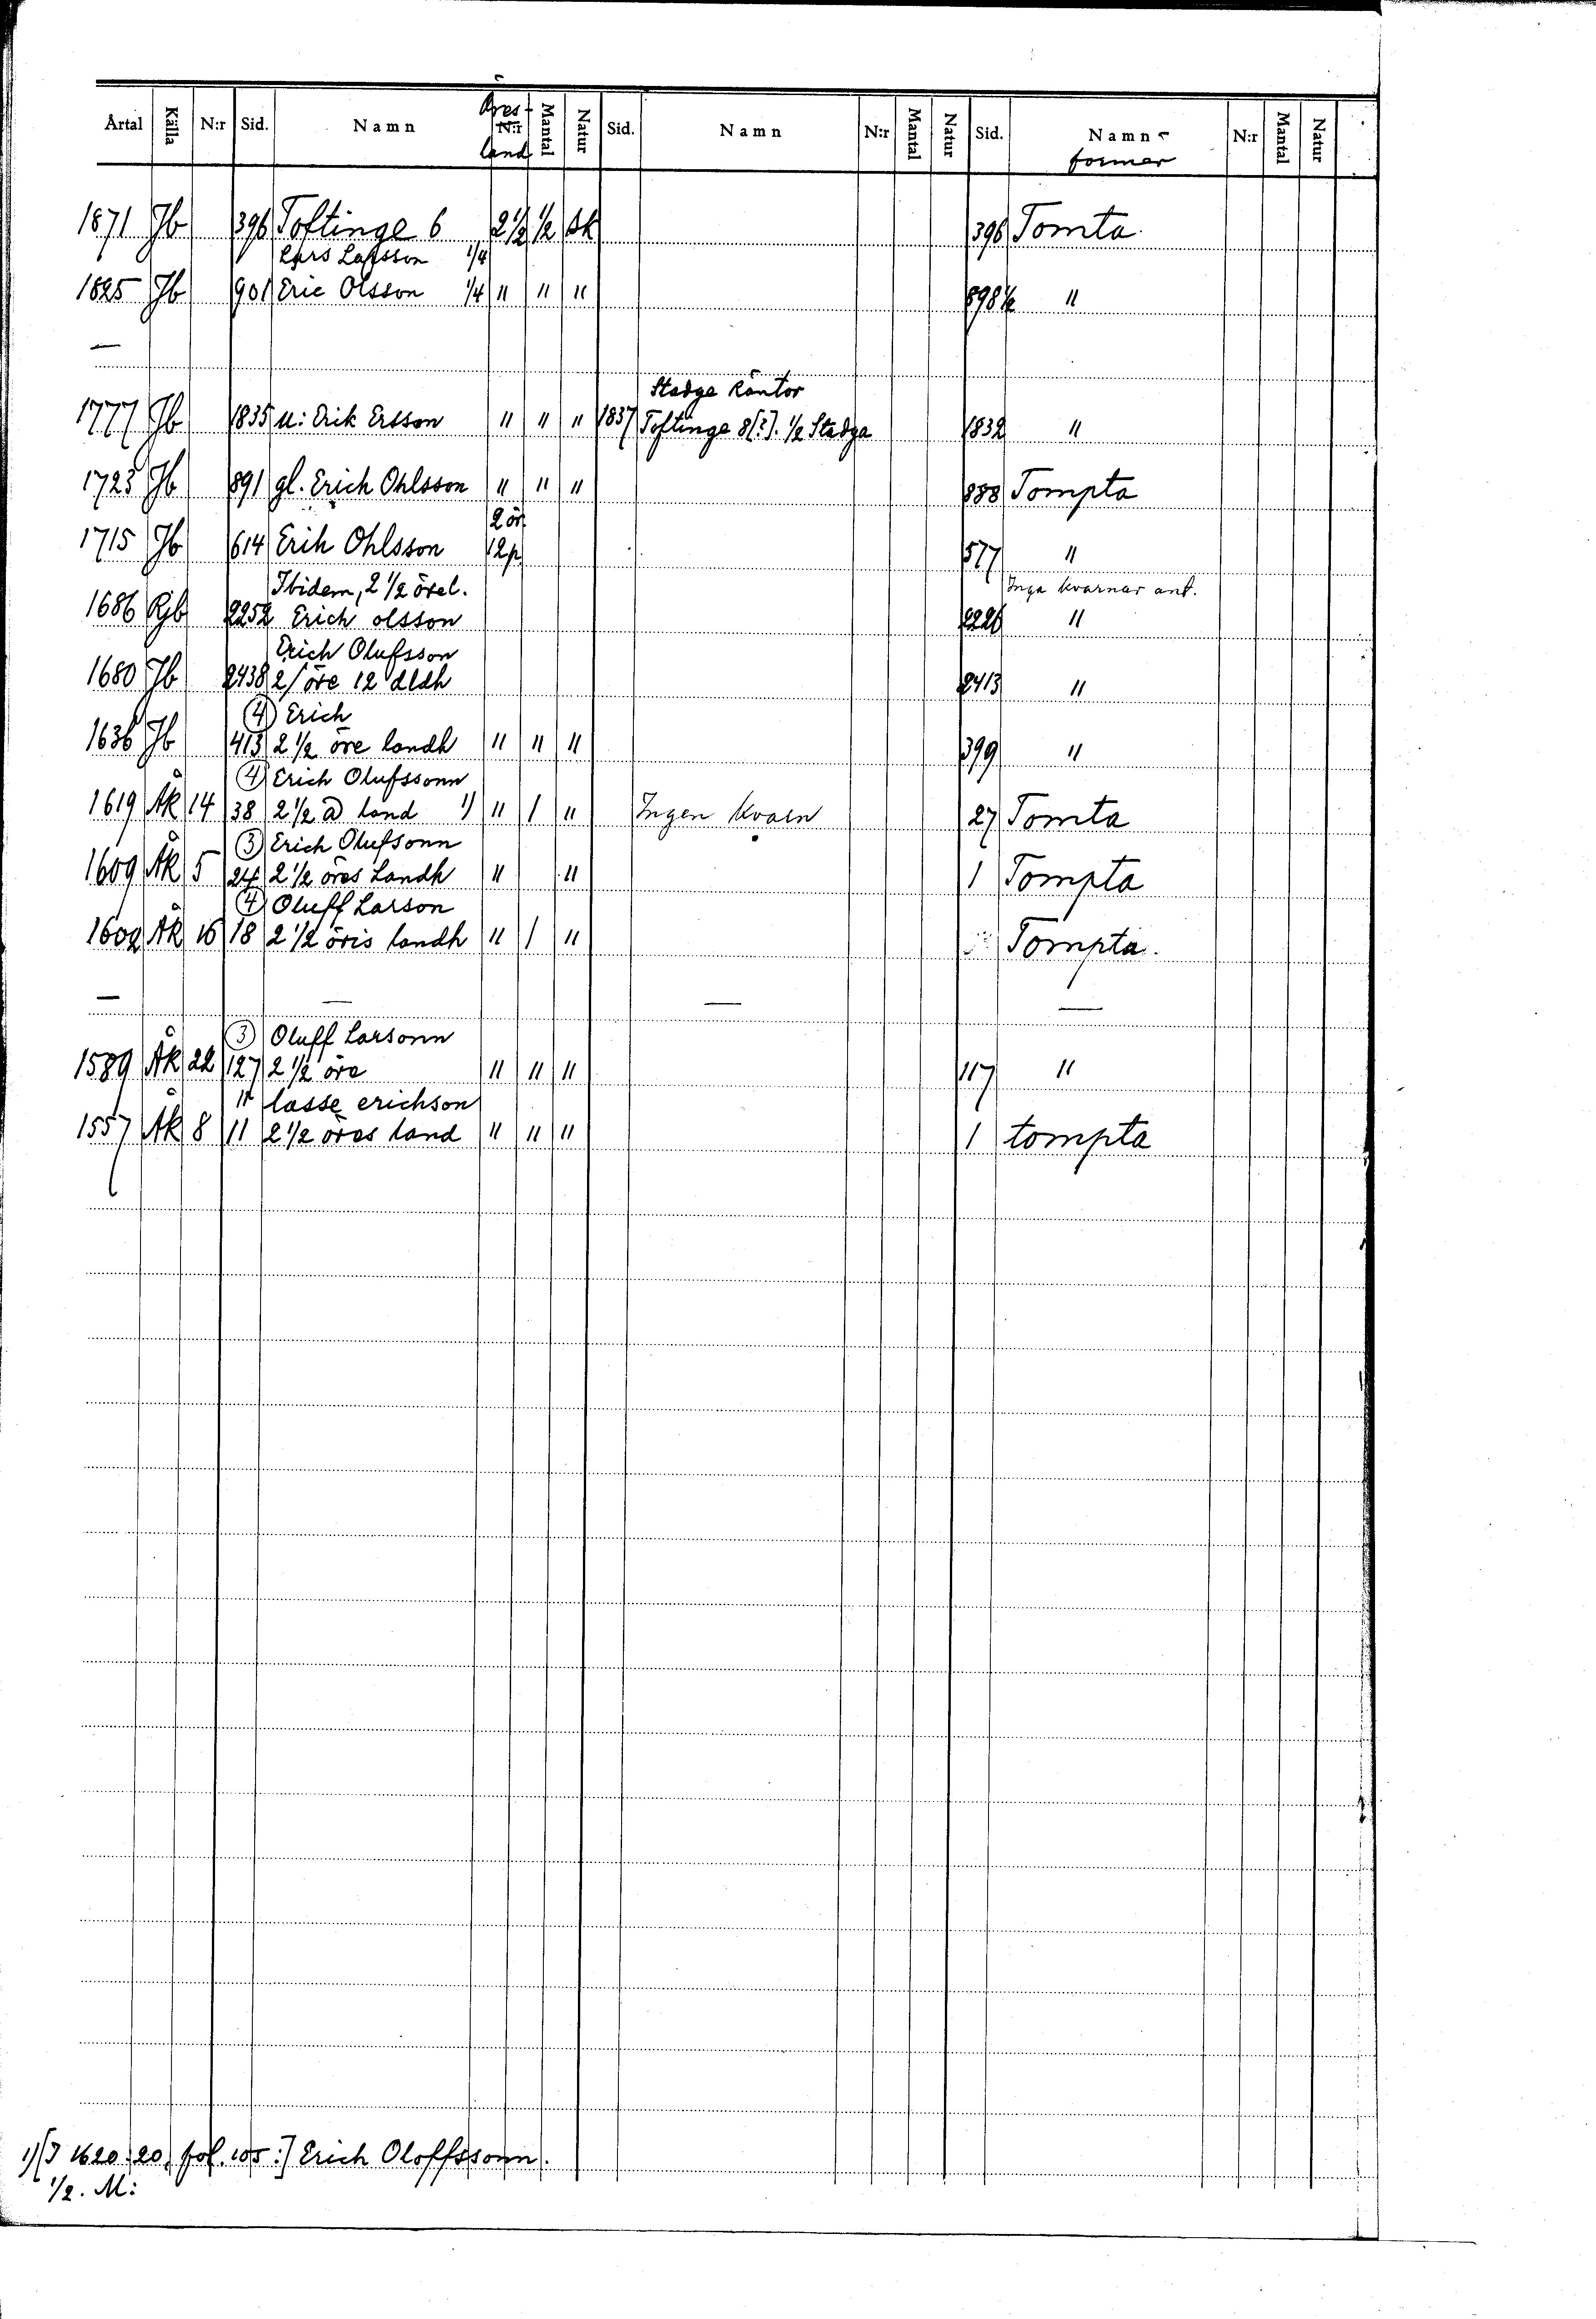 Årtal Källa N:r Sid. Namn Öres- N:r land Mantal Natur Sid. Namn N:r Mantal Natur Sid. Namn- former N:r Mantal Natur
1871 Jb 396 Toftinge 6 2 1/2 1/2 Sk 396 Tomta
Lars Larsson 1/4
1825 Jb 901 Eric Olsson 1/4 " " " 898 1/2 "
—
Stadga Räntor
1777 Jb 1835 u: Erik Ersson " " " 1837 Toftinge 8[?]. 1/2 Stadga 1832 "
1723 Jb 891 gl. Erich Ohlsson " " " 888 Tompta
2 ör
1715 Jb 614 Erik Ohlsson 12p 577 "
Ibidem, 2 1/2 örel. Inga kvarnar ant.
1686 Rjb 2252 Erich olsson 2226 "
Erich Olufsson
1680 Jb 2438 2/öre 12 dldh 2413 "
(4) Erich
1636 Jb 413 2 1/2 öre landh " " " 399 "
(4) Erich Olufssonn
1619 ÅK 14 38 2 1/2 land 1) " 1 " Ingen kvarn 27 Tomta
(3) Erich Olufsonn
1609 ÅK 5 24 2 1/2 öres Landh " " 1 Tompta
(4) Oluff Larson
1602 ÅK 16 18 2 1/2 öris landh " 1 " Tompta.
— — — —
(3) Oluff Larsonn
1589 ÅK 22 127 2 1/2 öre " " " 117 "
" lasse erichson
1557 ÅK 8 11 2 1/2 öres land " " " 1 tompta
1)[J 1620:20, fol. 105:] Erich Oloffssonn.
1/2. M: